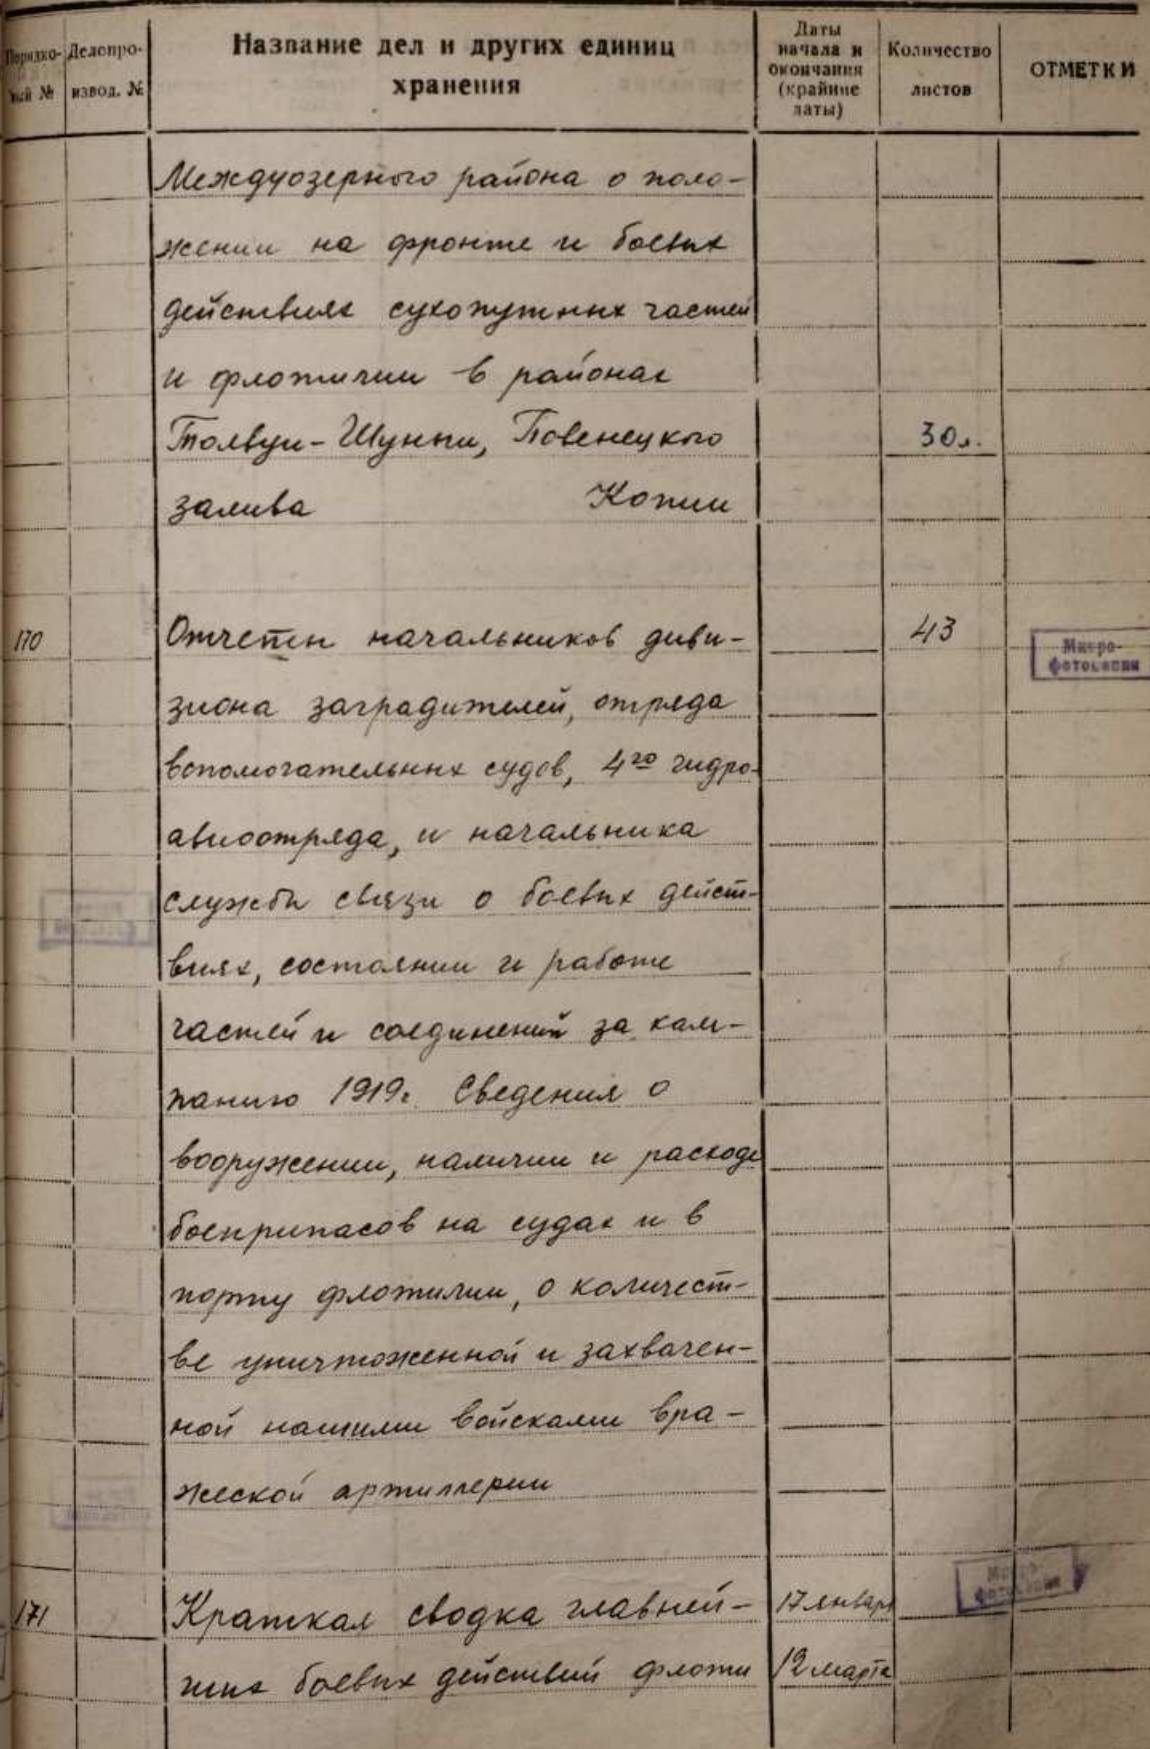 Порядко-
вый №
Делопро-
извод. №
Название дел и других единиц
хранения
Даты
начала и
окончания
(крайние
даты)
Количество
листов
ОТМЕТКИ
Междуозерного района о поло-
жении на фронте и боевых
действиях сухопутных частей
и флотилии в районах
Толвуи-Шуньги, Повенецкого 30л.
залива Копии
170 Отчеты начальников диви- 43
Микро-
фотокопии
зиона заградителей, отряда
вспомогательных судов, 4го гидро-
авиоотряда, и начальника
службы связи о боевых дейст-
виях, состоянии и работе
частей и соединений за кам-
панию 1919г. Сведения о
вооружении, наличии и расходе
боеприпасов на судах и в
порту флотилии, о количест-
ве уничтоженной и захвачен-
ной нашими войсками вра-
жеской артиллерии
Микро-
фотокопии
171 Краткая сводка главней- 17 январ
ших боевых действий флоти 12 марта